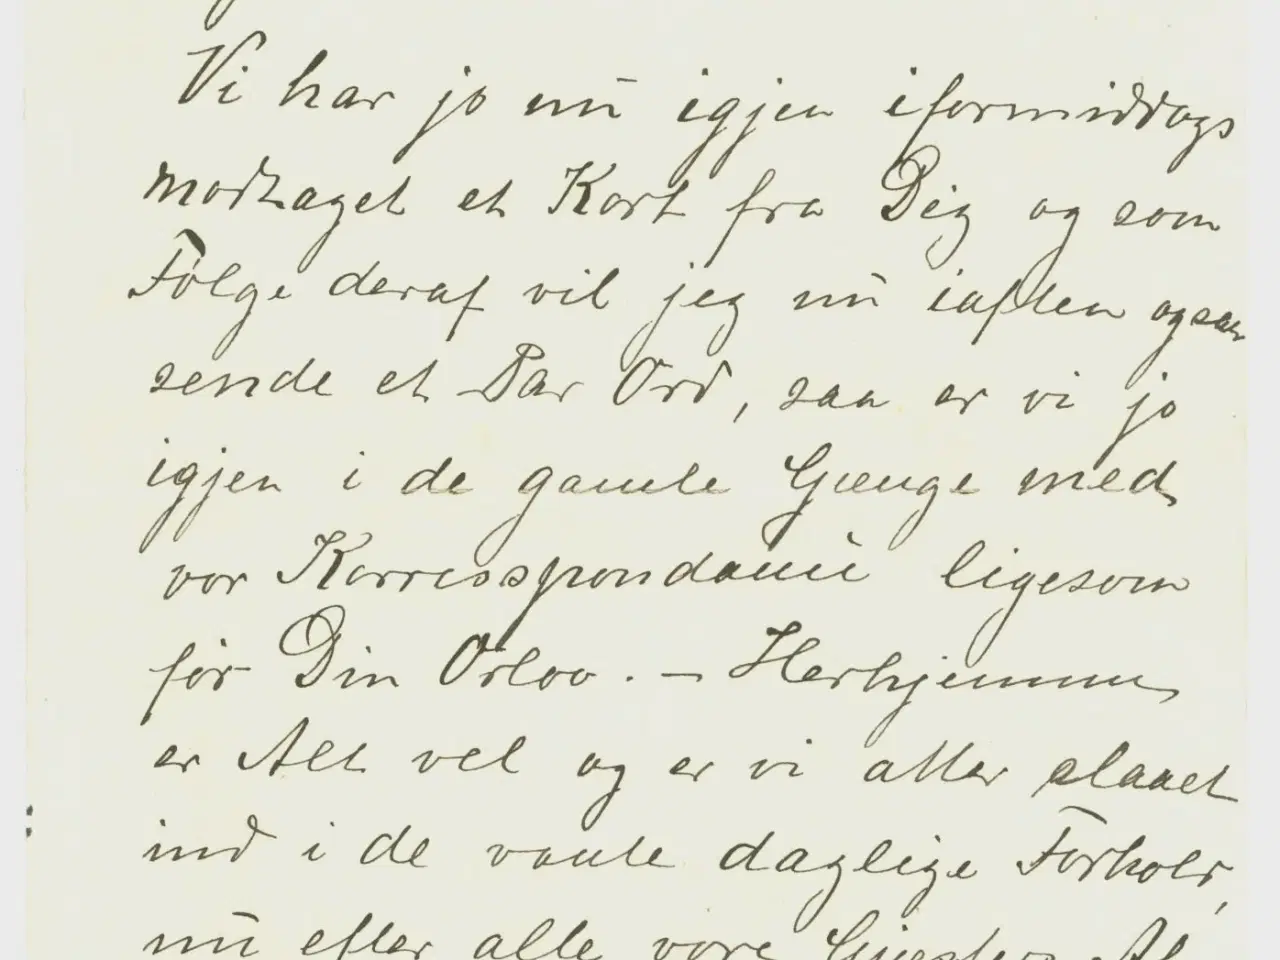 Vi har jo nu igjen iformiddags
modtaget et Kort fra Dig og som
Følge deraf vil jeg nu iaften ogsaa
sende et Par Ord, saa er vi jo
igjen i de gamle Gænge med
vor Korrespondanse ligesom
før Din Orlov. – Herhjemme
er Alt vel og er vi atter slaaet
ind i de vante daglige Forhold,
nu efter alle vore Gjæsters